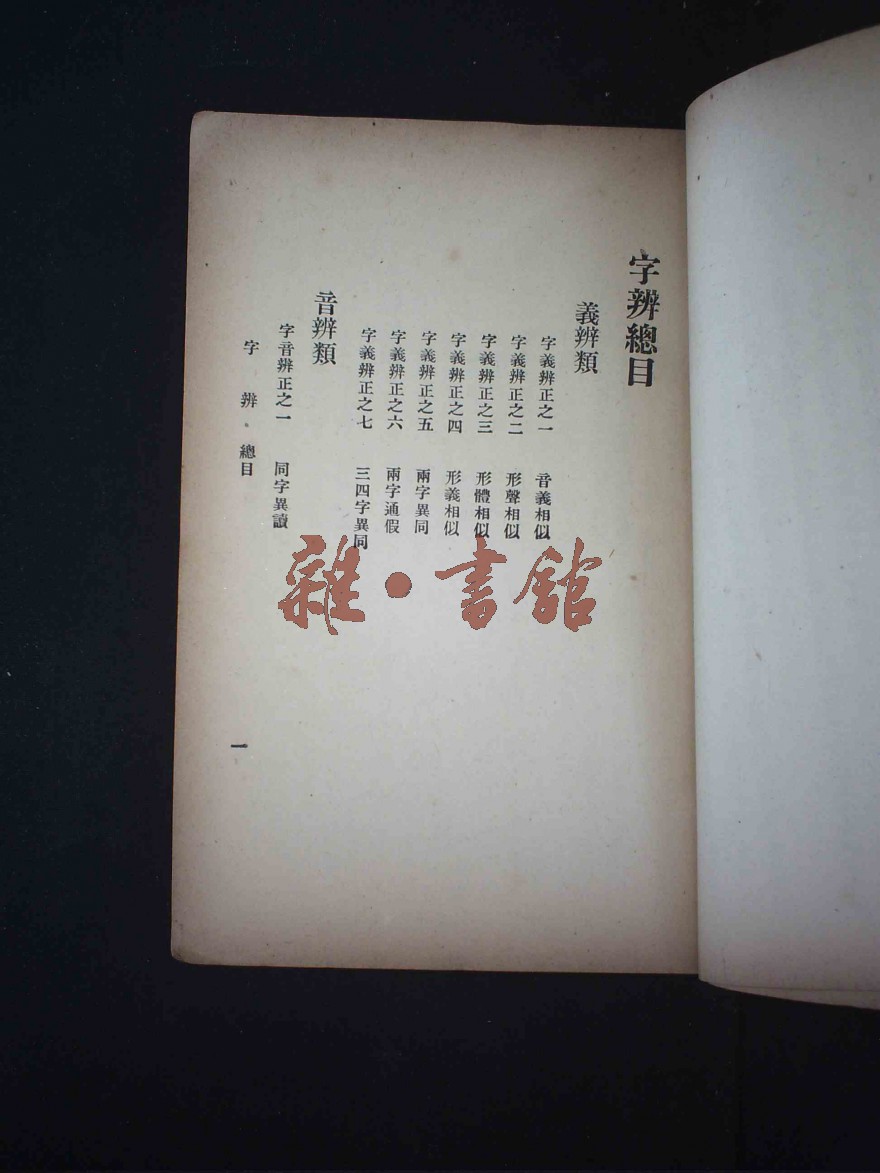 字辨總目
義辨類
字義辨正之一　音義相似
字義辨正之二　形聲相似
字義辨正之三　形體相似
字義辨正之四　形義相似
字義辨正之五　兩字異同
字義辨正之六　兩字通假
字義辨正之七　三四字異同
音辨類
字音辨正之一　同字異讀
字辨　總目
一
雜·書館